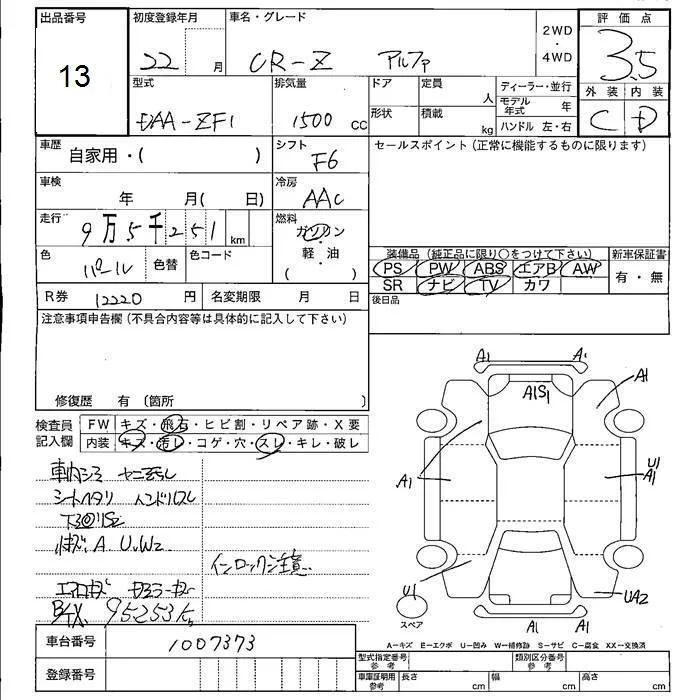 出品番号
13
初度登録年月
22 月
車名・グレード
CR-Z アルファ
2WD
・
4WD
評価点
3.5
外装 内装
C D
型式
DAA-ZF1
排気量
1500 cc
ドア
定員
人
形状
積載
kg
ディーラー・並行
モデル年式 年
ハンドル 左・右
車歴
自家用・( )
シフト
F6
セールスポイント(正常に機能するものに限ります)
車検
年 月( 日)
冷房
AAC
走行
9万5千251 km
燃料
ガソリン
・
軽・油
( )
色
パール
色替
色コード
装備品(純正品に限り○をつけて下さい)
PS PW ABS エアB AW
SR ナビ TV カワ
新車保証書
有・無
R券 12220 円
名変期限 月 日
後日品
注意事項申告欄(不具合内容等は具体的に記入して下さい)
修復歴 有 〔箇所 〕
検査員記入欄
FW キズ・飛石・ヒビ割・リペア跡・X要
内装 キズ・汚レ・コゲ・穴・スレ・キレ・破レ
車内シミ
シートヘタリ ハンドルスレ
A U.W2
インロック注意
エアロキズ
95253K
A1
A1
A1S1
A1
A1
U1
A1
U1
UA2
A1
A1
スペア
A-キズ E-エクボ U-凹み W-補修跡 S-サビ C-腐食 XX-交換済
車台番号
1007373
登録番号
型式指定番号
参考
類別区分番号
参考
車庫証明用
参考
長さ cm
幅 cm
高さ cm